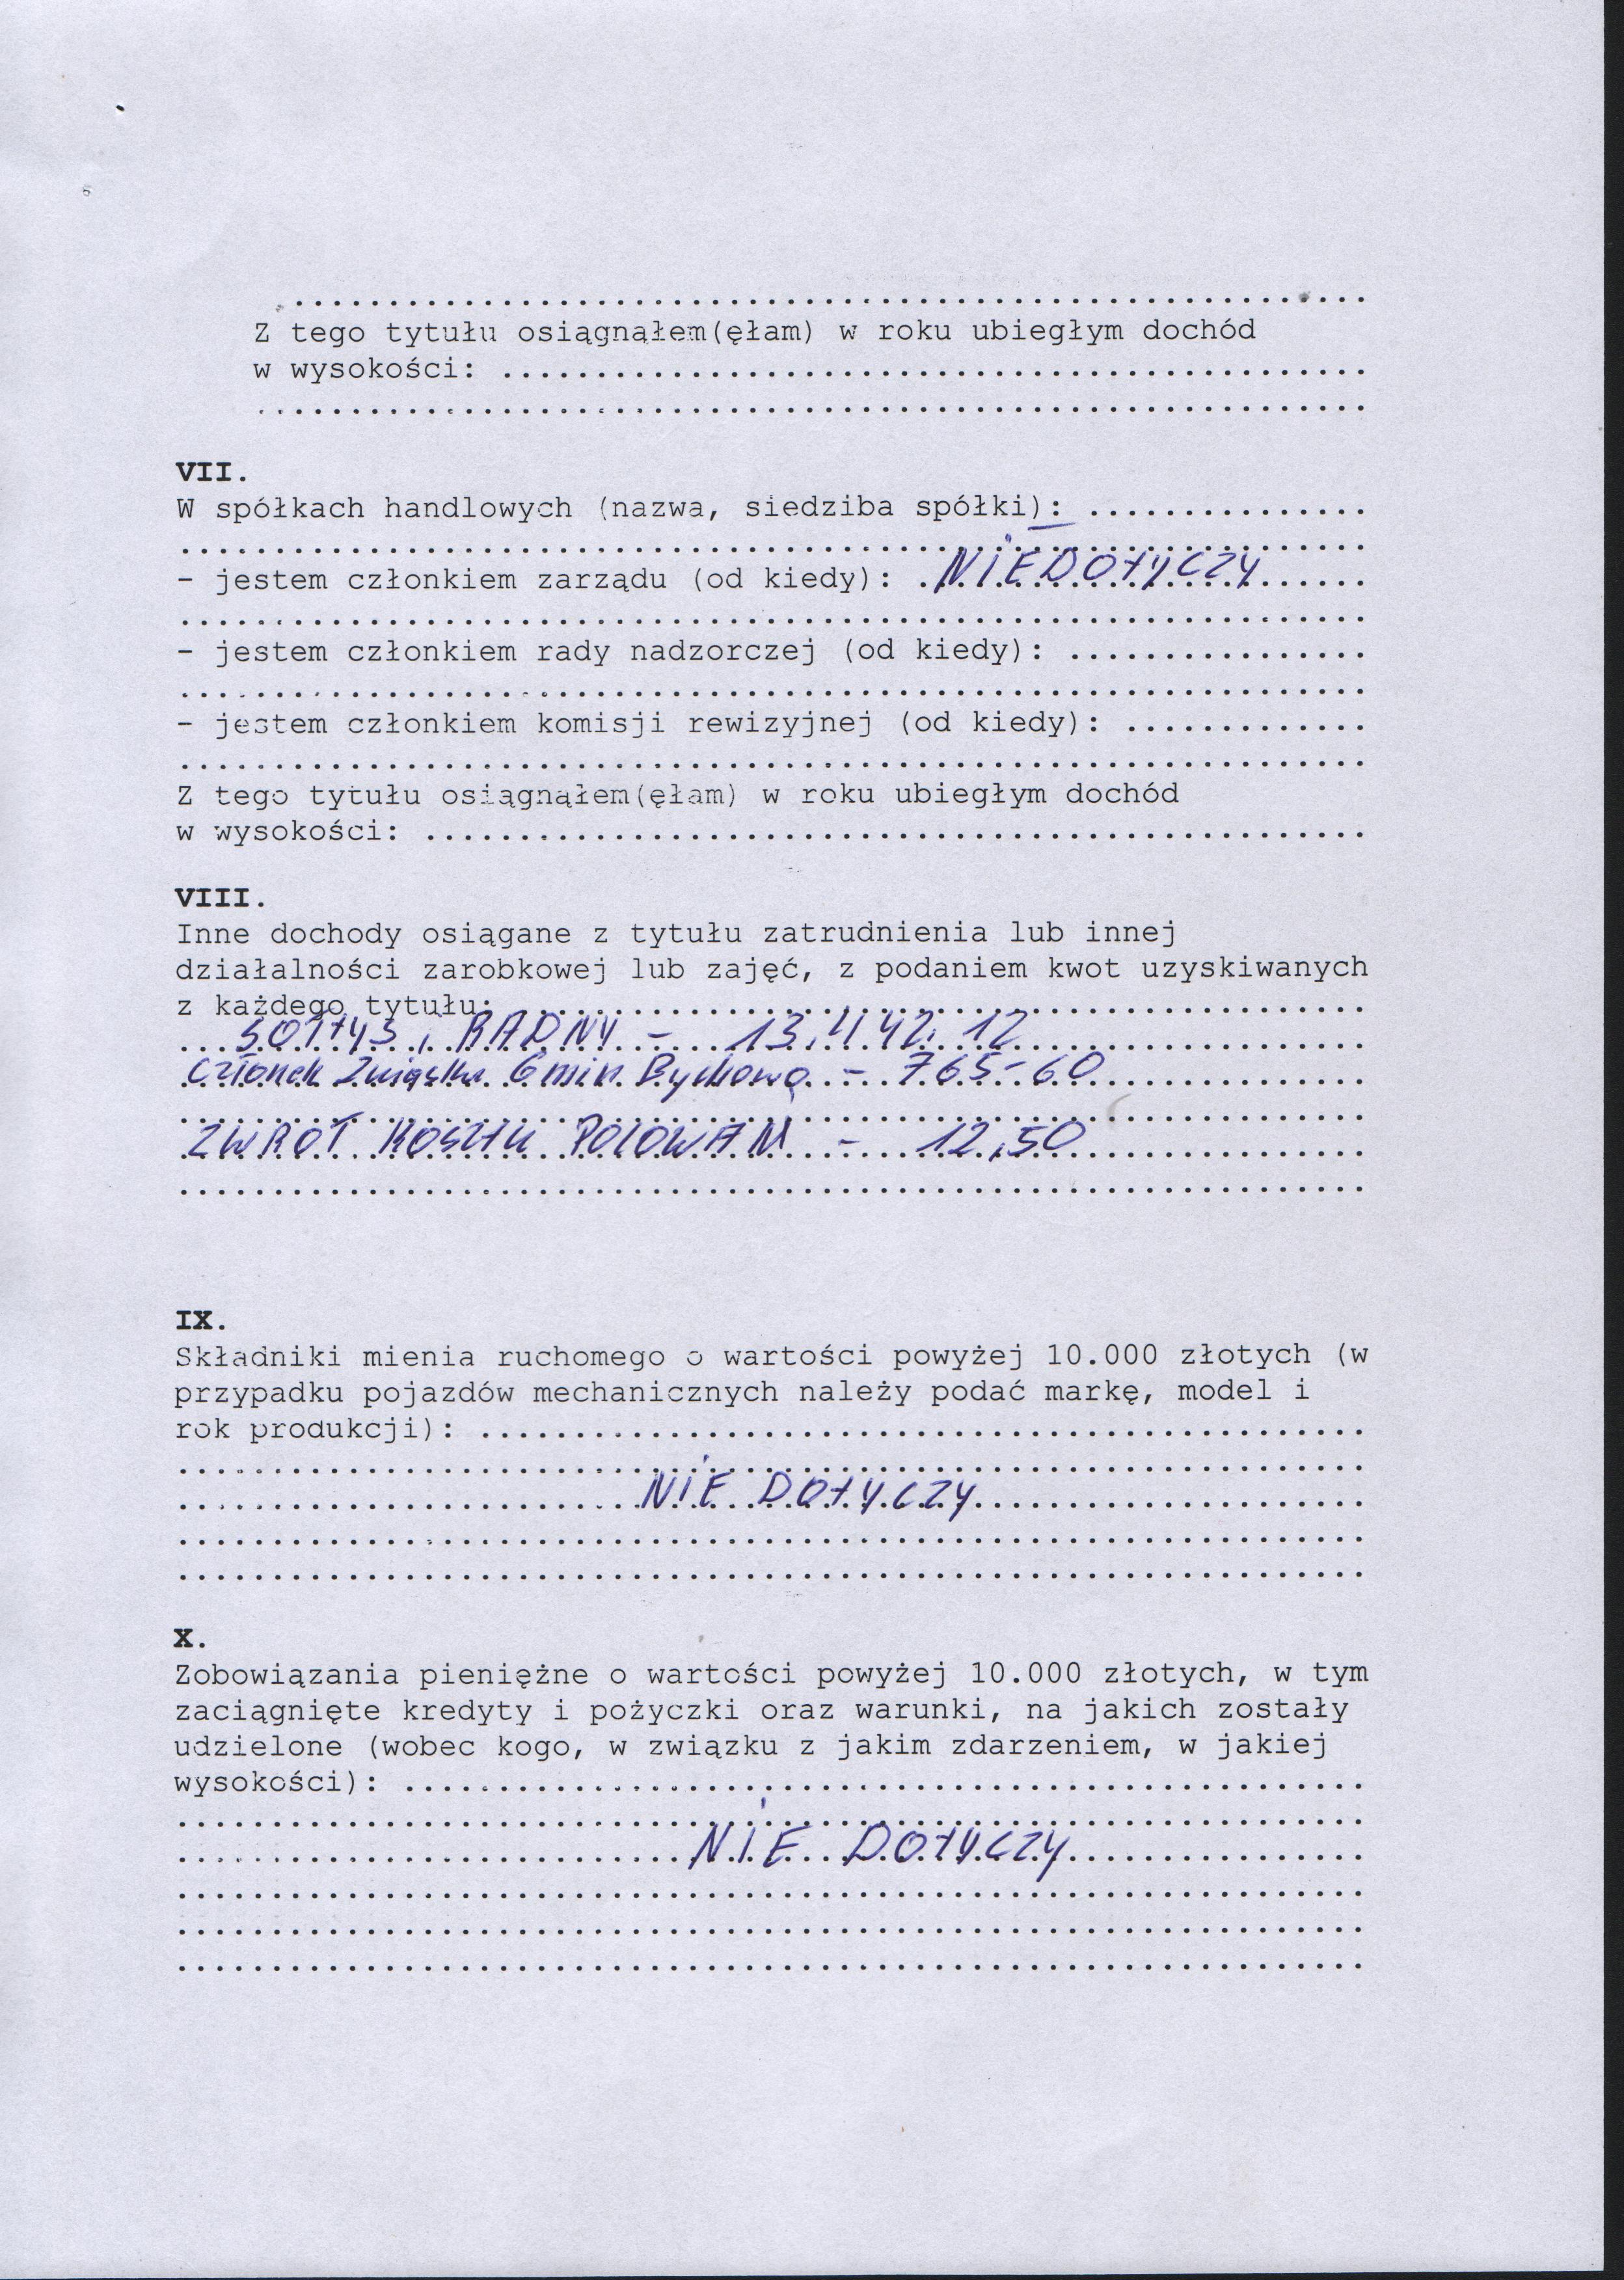 Z tego tytułu osiągnąłem(ęłam) w roku ubiegłym dochód
w wysokości:
VII.
W spółkach handlowych (nazwa, siedziba spółki):
- jestem członkiem zarządu (od kiedy): NIE DOTYCZY
- jestem członkiem rady nadzorczej (od kiedy):
- jestem członkiem komisji rewizyjnej (od kiedy):
Z tego tytułu osiągnąłem(ęłam) w roku ubiegłym dochód
w wysokości:
VIII.
Inne dochody osiągane z tytułu zatrudnienia lub innej
działalności zarobkowej lub zajęć, z podaniem kwot uzyskiwanych
z każdego tytułu:
SOŁTYS, RADNY - 13.442,12
Członek Związku Gmin - 765-60
ZWROT KOSZTU POLOWAŃ - 12,50
IX.
Składniki mienia ruchomego o wartości powyżej 10.000 złotych (w
przypadku pojazdów mechanicznych należy podać markę, model i
rok produkcji):
NIE DOTYCZY
X.
Zobowiązania pieniężne o wartości powyżej 10.000 złotych, w tym
zaciągnięte kredyty i pożyczki oraz warunki, na jakich zostały
udzielone (wobec kogo, w związku z jakim zdarzeniem, w jakiej
wysokości):
NIE DOTYCZY